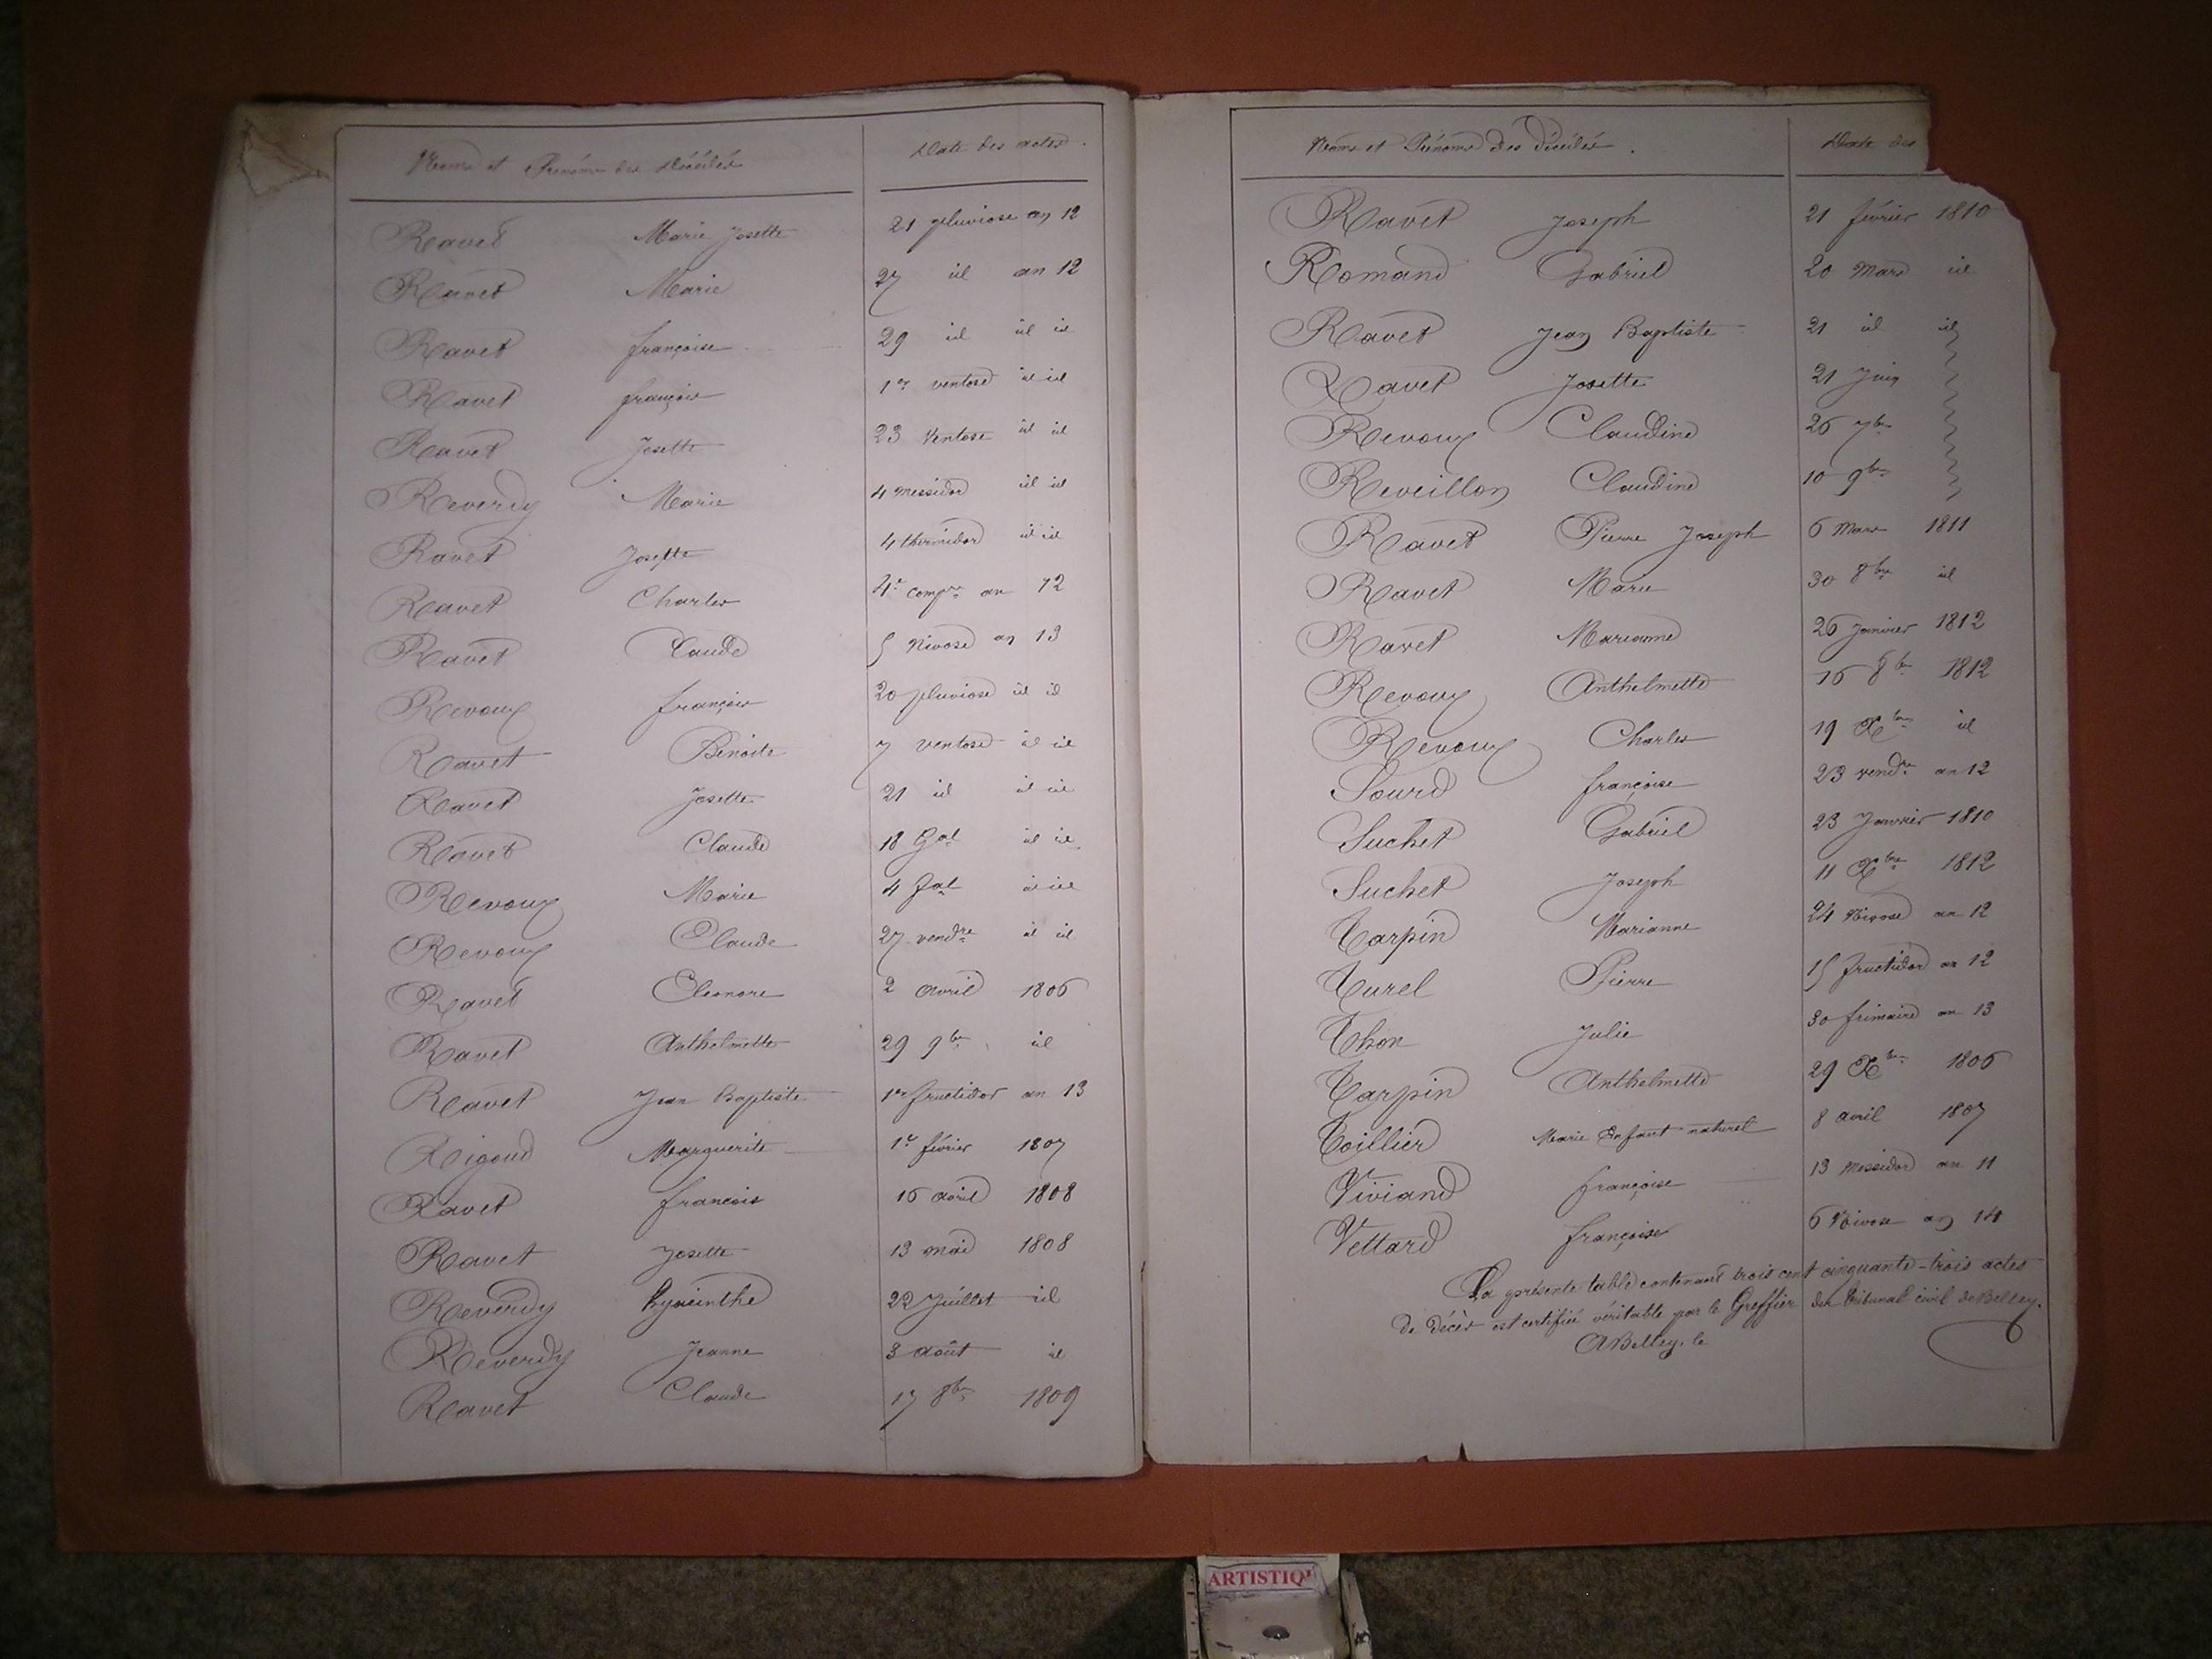 Noms et Prénoms des Décédés Date des actes.
Ravet Marie Josette 21 pluviose an 12
Ravet Marie 27 id an 12
Ravet françoise 29 id id id
Ravet françois 1er ventose id id
Ravet Josette 23 Ventose id id
Reverdy Marie 4 messidor id id
Ravet Josette 4 thermidor id id
Ravet Charles 4e compre an 12
Ravet Claude 5 Nivose an 13
Revoux françois 20 pluviose id id
Ravet Benoite 7 ventose id id
Ravet Josette 21 id id id
Ravet Claude 18 Gal id id
Revoux Marie 4 fal id id
Revoux Claude 27 vendre id id
Ravet Eleonore 2 avril 1806
Ravet Anthelmette 29 9bre id
Ravet Jean Baptiste 1er fructidor an 13
Rigoud Marguerite 1er février 1807
Ravet francois 16 avril 1808
Ravet Josette 13 mai 1808
Reverdy hyacinthe 22 Juillet id
Reverdy Jeanne 3 août id
Ravet Claude 17 8bre 1809
Noms et Prénoms des Décédés. Date des
Ravet Joseph 21 février 1810
Romand Gabriel 20 Mars id
Ravet Jean Baptiste 21 id id
Ravet Josette 21 Juin
Revoux Claudine 26 7bre
Reveillon Claudine 10 9bre
Ravet Pierre Joseph 6 Mars 1811
Ravet Marie 30 8bre id
Ravet Marianne 26 Janvier 1812
Revoux Anthelmette 16 8bre 1812
Revoux Charles 19 Xbre id
Sourd françoise 23 vendre an 12
Suchet Gabriel 23 Janvier 1810
Suchet Joseph 11 Xbre 1812
Tarpin Marianne 24 Nivose an 12
Turel Pierre 15 fructidor an 12
Thon Julie 30 frimaire an 13
Tarpin Anthelmette 29 Xbre 1806
Toillier Marie Enfant naturel 8 avril 1807
Viviand françoise 13 Messidor an 11
Vettard françoise 6 Nivose an 14
La présente table contenant trois cent cinquante-trois actes
de décès est certifiée véritable par le Greffier du tribunal civil de Belley.
A Belley, le
ARTISTIQ